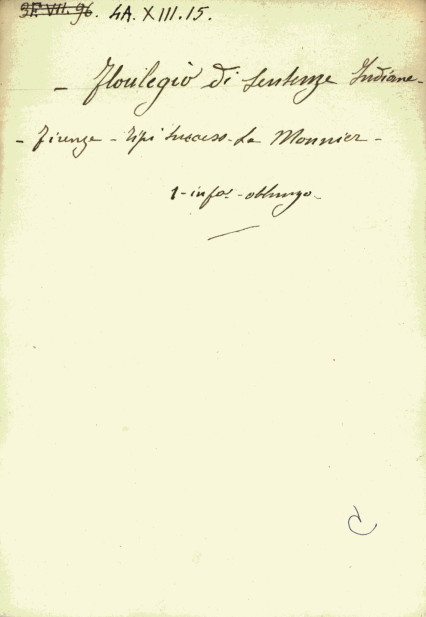 3F. VII. 96. 4A. XIII. 15.
- Florilegio di Sentenze Indiane -
- Firenze - Tipi Success. Le Monnier -
1 - info.° - oblungo -
C